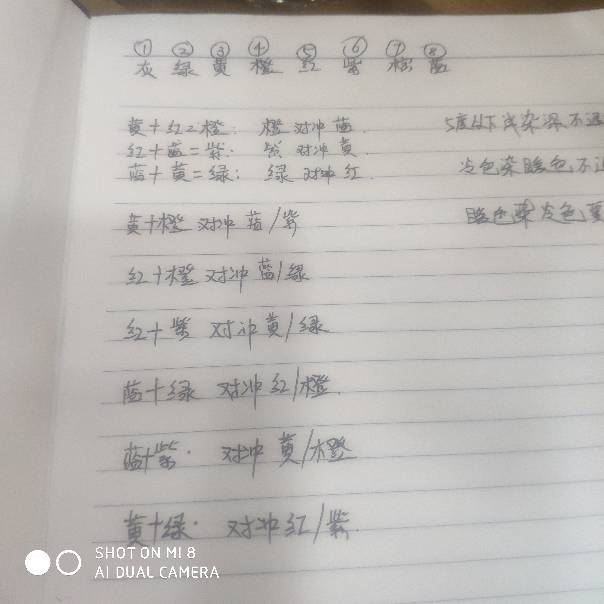 ① ② ③ ④ ⑤ ⑥ ⑦ ⑧
灰 绿 黄 橙 红 紫 棕 蓝
黄+红=橙: 橙对冲蓝. 5度以下浅染深不
红+蓝=紫: 紫对冲黄. 冷色染暖色不
蓝+黄=绿: 绿对冲红. 暖色染冷色要
黄+橙 对冲 蓝/紫
红+橙 对冲 蓝/绿
红+紫 对冲 黄/绿
蓝+绿 对冲 红/橙
蓝+紫. 对冲 黄/橙
黄+绿. 对冲 红/紫.
SHOT ON MI 8
AI DUAL CAMERA